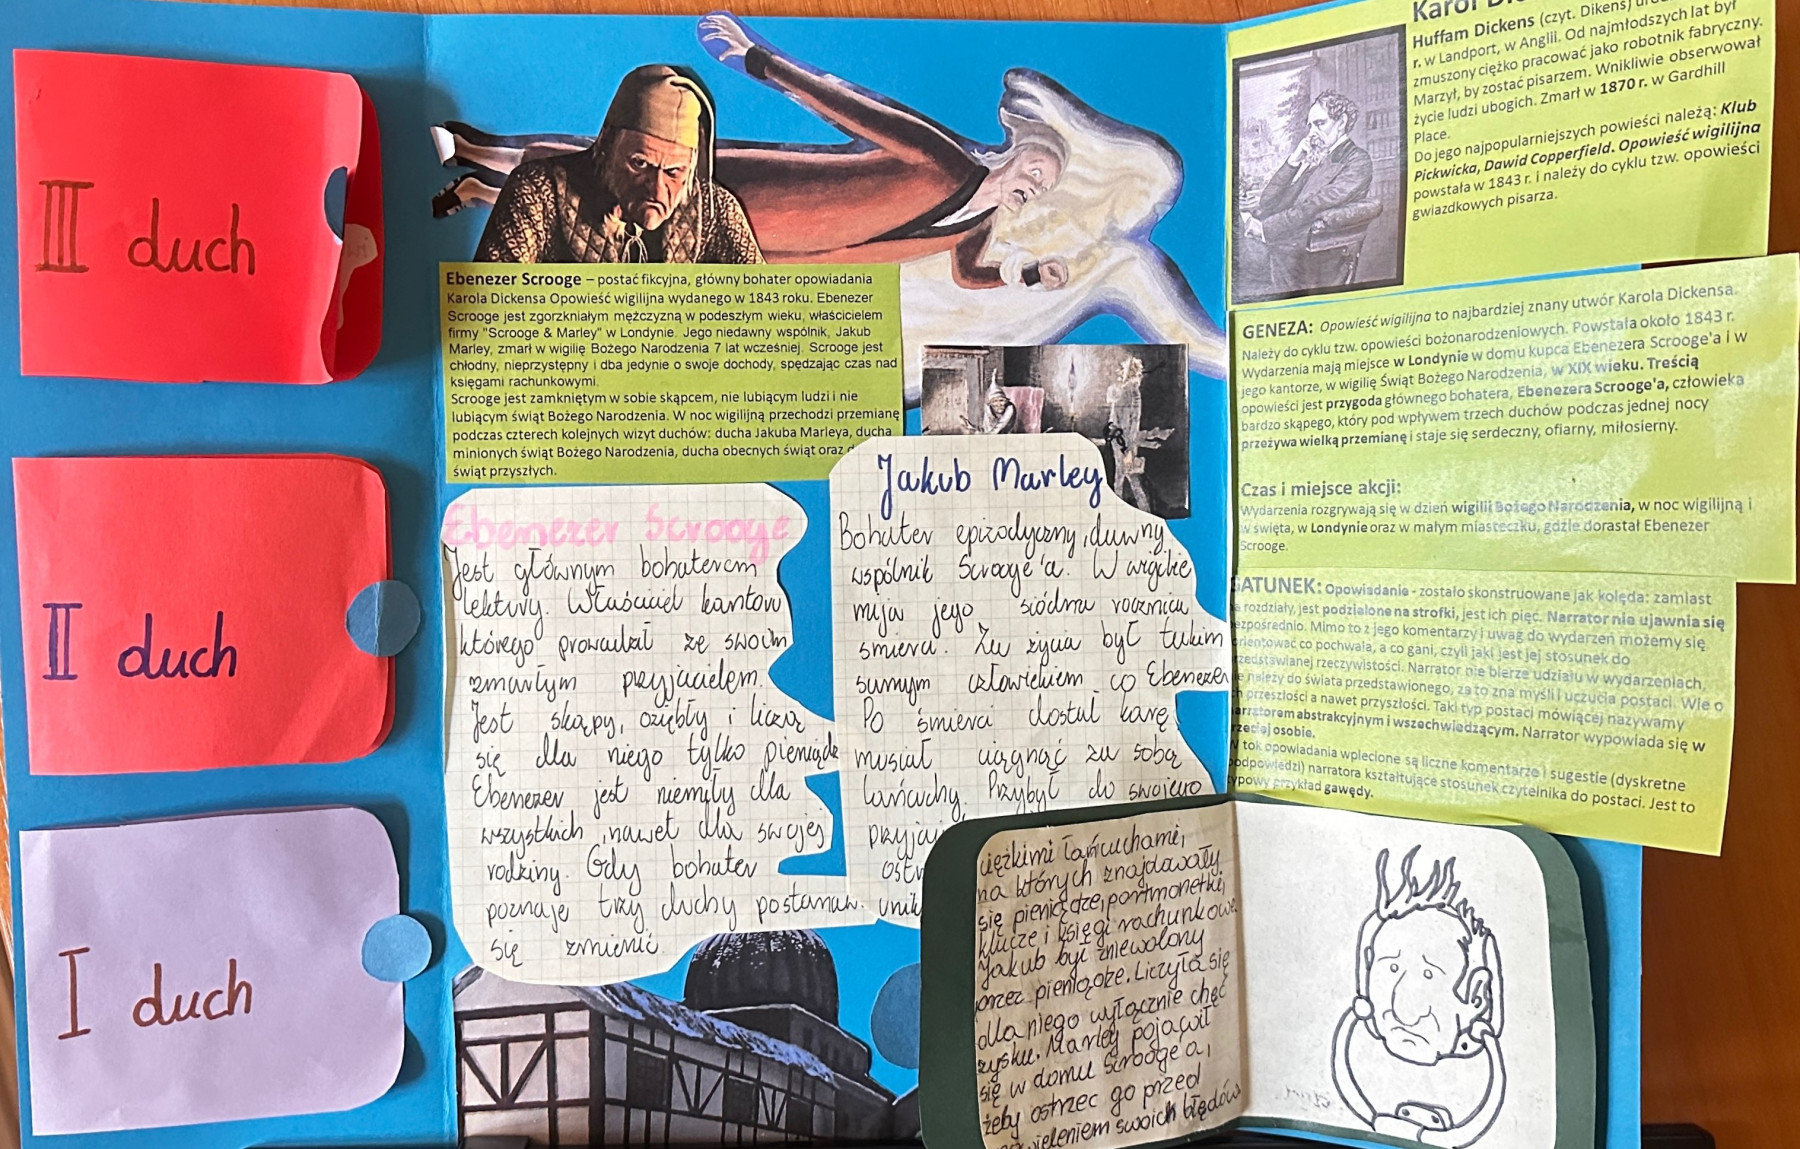 III duch
II duch
I duch
Ebenezer Scrooge – postać fikcyjna, główny bohater opowiadania
Karola Dickensa Opowieść wigilijna wydanego w 1843 roku. Ebenezer
Scrooge jest zgorzkniałym mężczyzną w podeszłym wieku, właścicielem
firmy "Scrooge & Marley" w Londynie. Jego niedawny wspólnik, Jakub
Marley, zmarł w wigilię Bożego Narodzenia 7 lat wcześniej. Scrooge jest
chłodny, nieprzystępny i dba jedynie o swoje dochody, spędzając czas nad
księgami rachunkowymi.
Scrooge jest zamkniętym w sobie skąpcem, nie lubiącym ludzi i nie
lubiącym świąt Bożego Narodzenia. W noc wigilijną przechodzi przemianę
podczas czterech kolejnych wizyt duchów: ducha Jakuba Marleya, ducha
minionych świąt Bożego Narodzenia, ducha obecnych świąt oraz
świąt przyszłych.
Ebenezer Scrooge
Jest głównym bohaterem
lektury. Właściciel kantoru
którego prowadził ze swoim
zmarłym przyjacielem.
Jest skąpy, oziębły i liczą
się dla niego tylko pieniądze
Ebenezer jest niemiły dla
wszystkich, nawet dla swojej
rodziny. Gdy bohater
poznaje trzy duchy postanaw.
się zmienić.
Jakub Marley
Bohater epizodyczny, dawny
wspólnik Scrooge'a. W wigilie
mija jego siódma rocznica
śmierci. Za życia był takim
samym człowiekiem co Ebenezer
Po śmierci dostał karę,
musiał ciągnąć za sobą
łańcuchy. Przybył do swojego
ciężkimi łańcuchami,
na których znajdowały
się pieniądze, portmonetki,
klucze i księgi rachunkowe.
Jakub był zniewolony
przez pieniądze. Liczyła się
dla niego wyłącznie chęć
zysku. Marley pojawił
się w domu Scrooge'a,
żeby ostrzec go przed
swoich błędów
Karol
Huffam Dickens (czyt. Dikens)
r. w Landport, w Anglii. Od najmłodszych lat był
zmuszony ciężko pracować jako robotnik fabryczny.
Marzył, by zostać pisarzem. Wnikliwie obserwował
życie ludzi ubogich. Zmarł w 1870 r. w Gardhill
Place.
Do jego najpopularniejszych powieści należą: Klub
Pickwicka, Dawid Copperfield. Opowieść wigilijna
powstała w 1843 r. i należy do cyklu tzw. opowieści
gwiazdkowych pisarza.
GENEZA: Opowieść wigilijna to najbardziej znany utwór Karola Dickensa.
Należy do cyklu tzw. opowieści bożonarodzeniowych. Powstała około 1843 r.
Wydarzenia mają miejsce w Londynie w domu kupca Ebenezera Scrooge'a i w
jego kantorze, w wigilię Świąt Bożego Narodzenia, w XIX wieku. Treścią
opowieści jest przygoda głównego bohatera, Ebenezera Scrooge'a, człowieka
bardzo skąpego, który pod wpływem trzech duchów podczas jednej nocy
przeżywa wielką przemianę i staje się serdeczny, ofiarny, miłosierny.
Czas i miejsce akcji:
Wydarzenia rozgrywają się w dzień wigilii Bożego Narodzenia, w noc wigilijną i
w święta, w Londynie oraz w małym miasteczku, gdzie dorastał Ebenezer
Scrooge.
GATUNEK: Opowiadanie - zostało skonstruowane jak kolęda: zamiast
na rozdziały, jest podzielone na strofki, jest ich pięć. Narrator nie ujawnia się
bezpośrednio. Mimo to z jego komentarzy i uwag do wydarzeń możemy się
zorientować co pochwala, a co gani, czyli jaki jest jej stosunek do
przedstawianej rzeczywistości. Narrator nie bierze udziału w wydarzeniach,
nie należy do świata przedstawionego, za to zna myśli i uczucia postaci. Wie o
ich przeszłości a nawet przyszłości. Taki typ postaci mówiącej nazywamy
narratorem abstrakcyjnym i wszechwiedzącym. Narrator wypowiada się w
trzeciej osobie.
W tok opowiadania wplecione są liczne komentarze i sugestie (dyskretne
podpowiedzi) narratora kształtujące stosunek czytelnika do postaci. Jest to
typowy przykład gawędy.